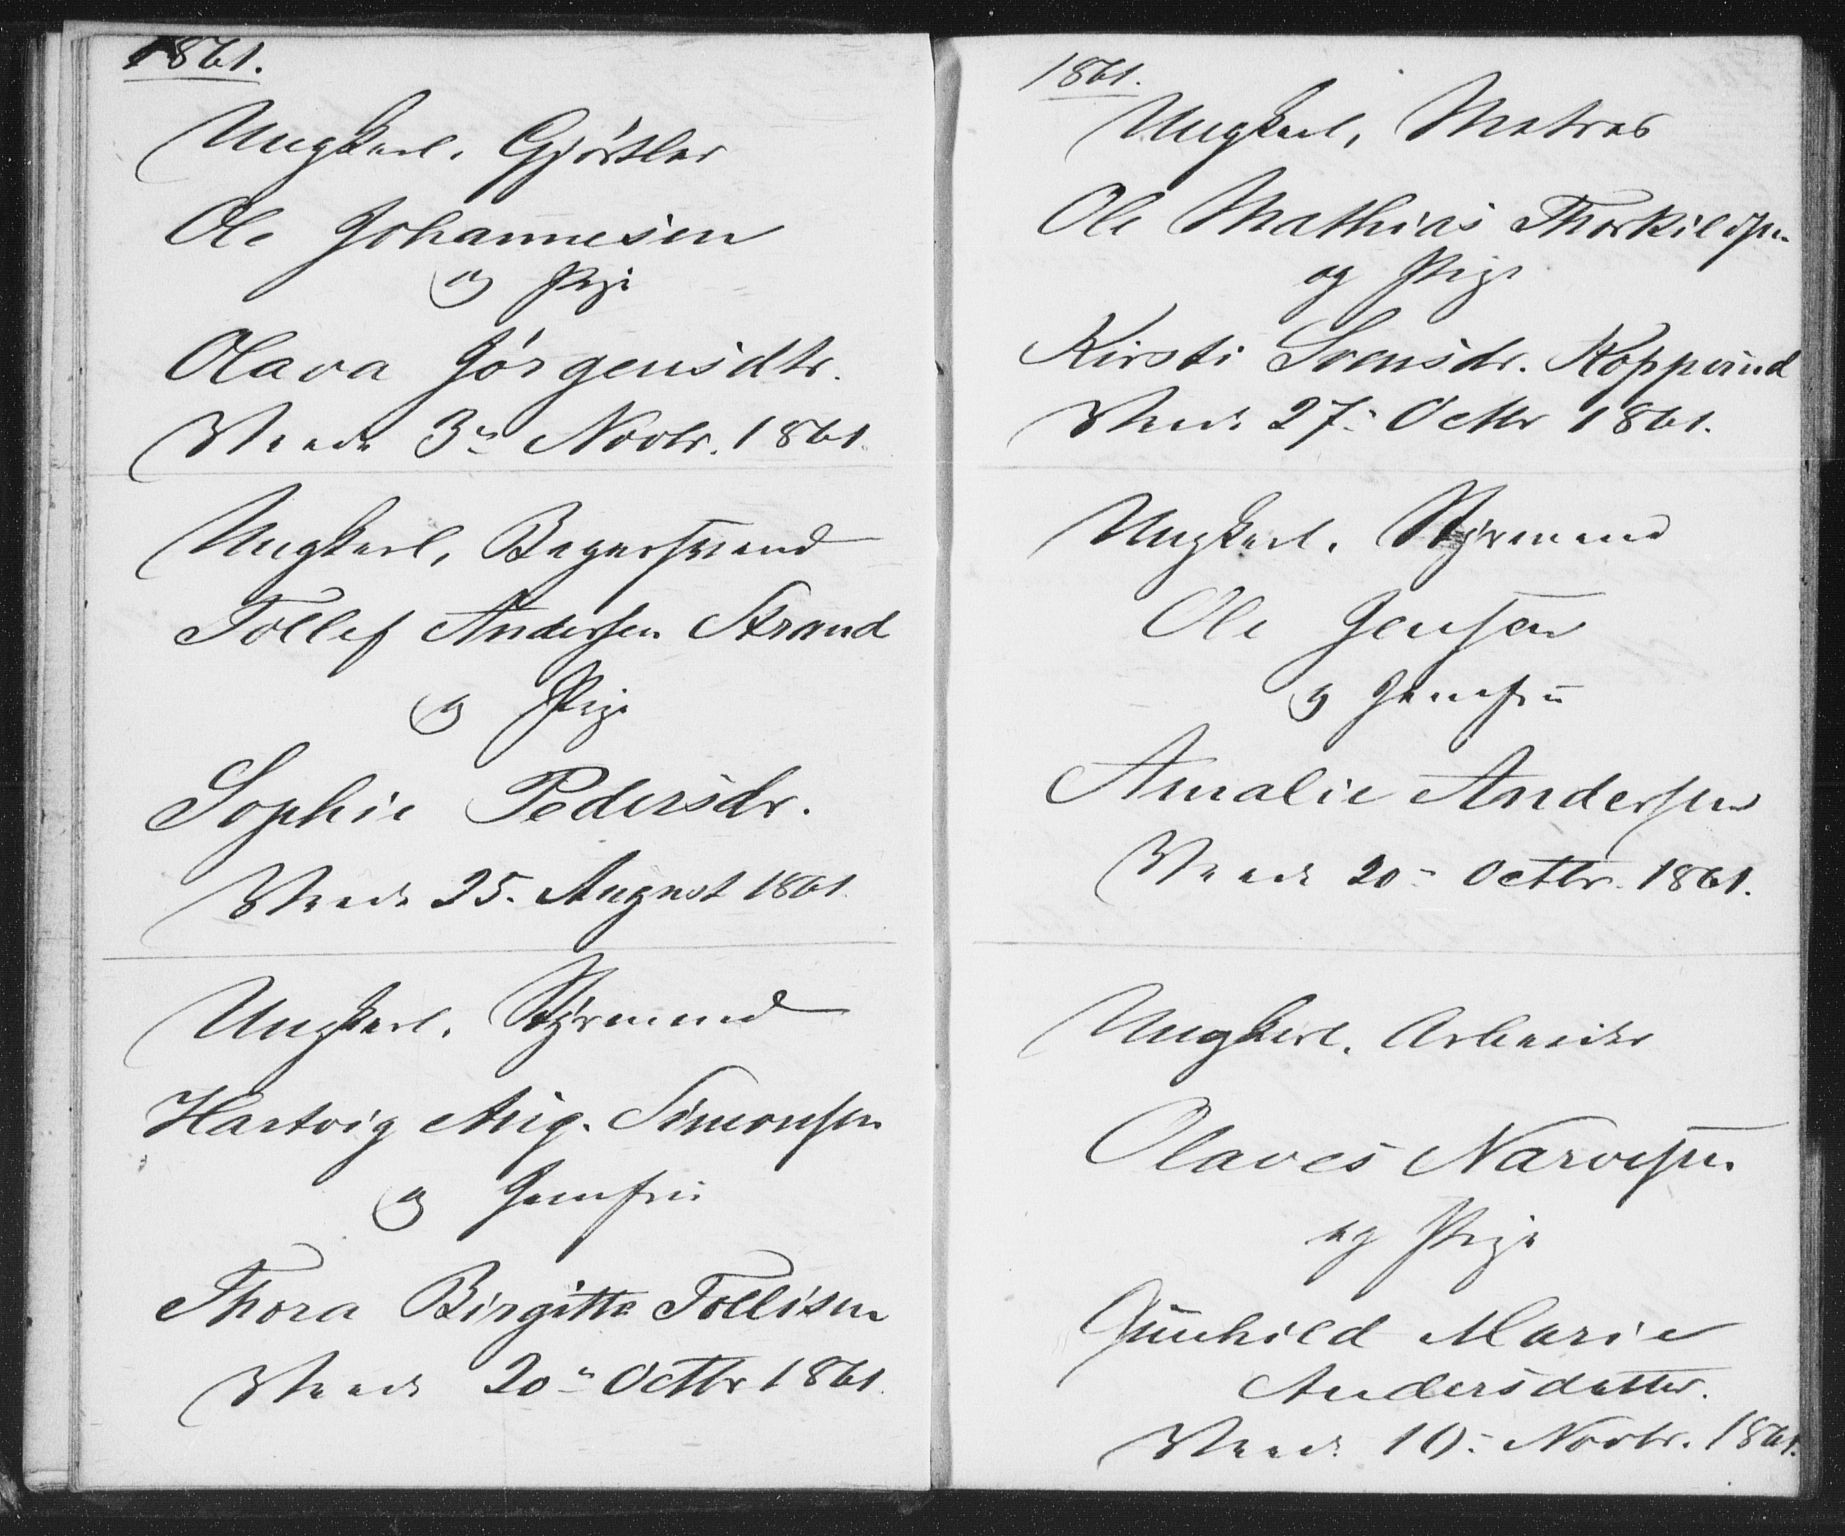 1861.
Ungkarl. Gjørtler
Ole Johannesen
og Pige
Olava Jørgensdtr.
3die Novbr. 1861.
Ungkarl, Bagersvend
Tollef Andersen Strand
og Pige
Sophie Pedersdr.
25. August 1861.
Ungkarl. Styrmand
Hartvig Aug. Simonsen
og Jomfru
Thora Birgitte Tollisen
20de Octbr 1861.
1861.
Ungkarl, Matros
Ole Mathias Thorkildsen
og Pige
Kirsti Svensdr. Kopperud
27. Octbr 1861.
Ungkarl. Styrmand
Ole Jensen
og Jomfru
Amalie Andersen
20. Octbr. 1861.
Ungkarl. Arbeider
Olaves Narvesen
og Pige
Gunhild Marie
Andersdatter.
10. Novbr. 1861.